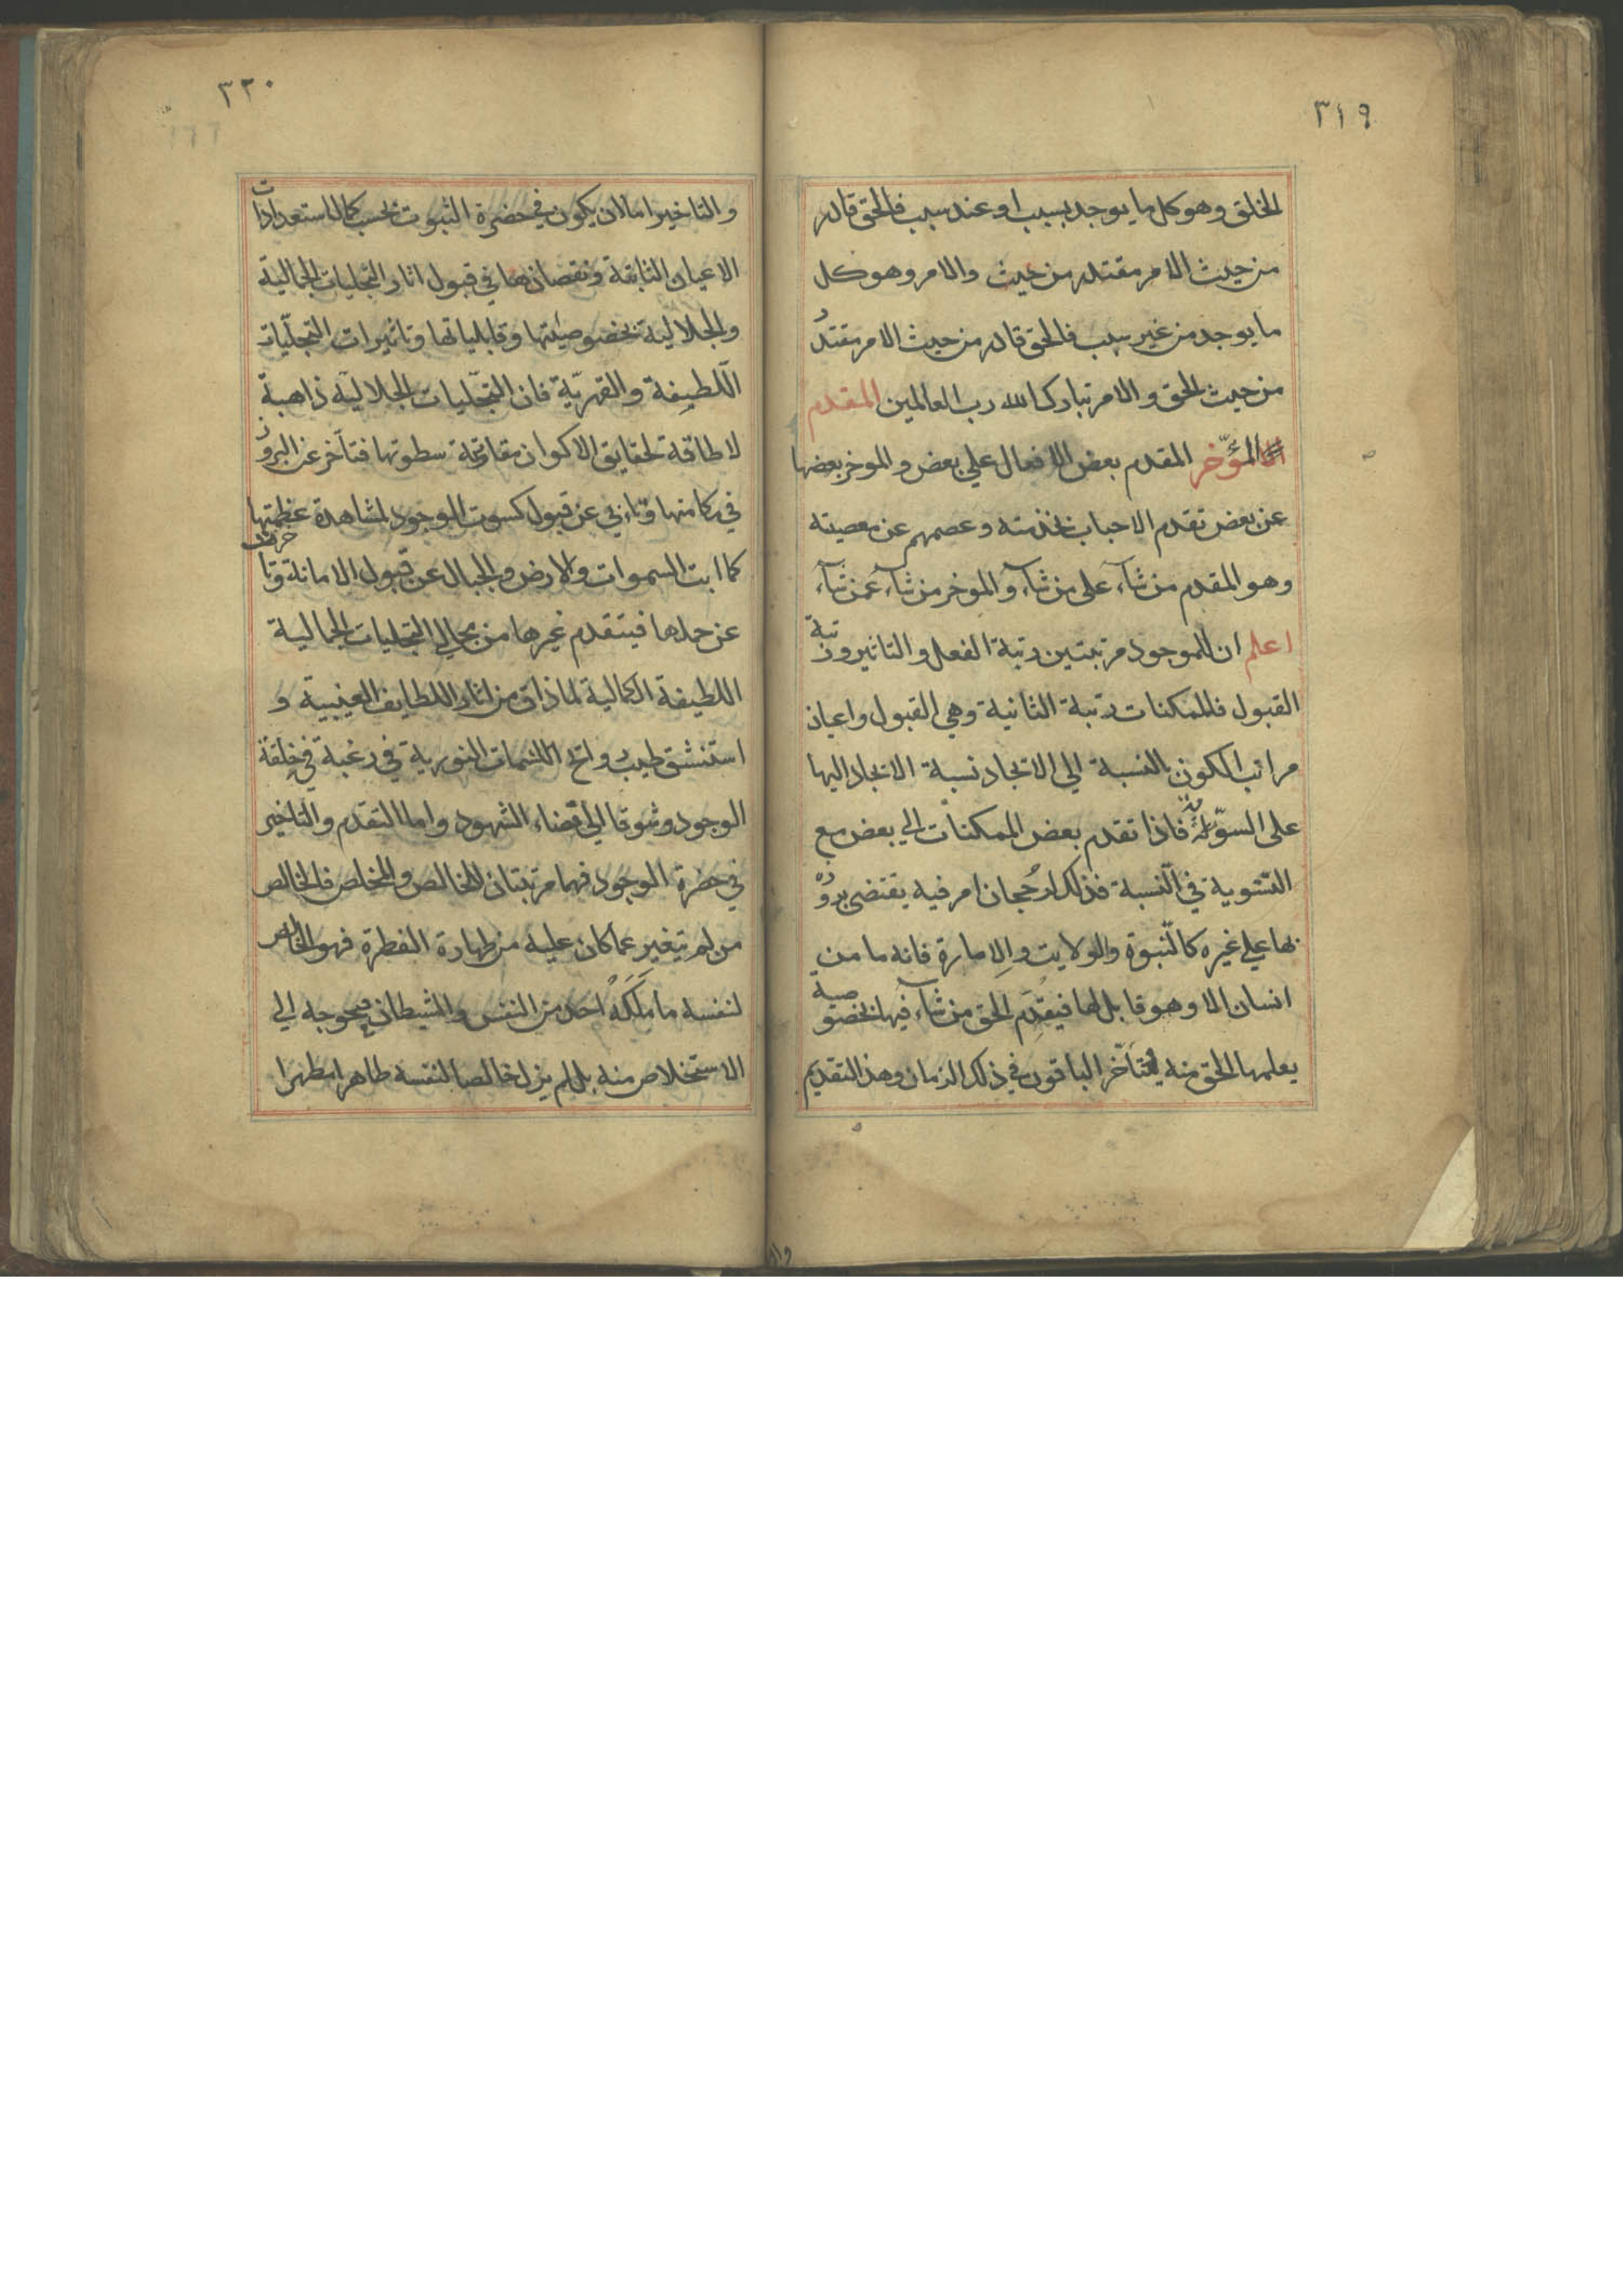 ٣١٩
الخلق وهو كل ما يوجد بسبب او عند سبب فالحق قادر
من حيث الامر مقتدر من حيث والامر وهو كل
ما يوجد من غير سبب فالحق قادر من حيث الامر مقتدر
من حيث الحق والامر تبارك الله رب العالمين المقدم
المؤخر المقدم بعض الافعال على بعض والموخر بعضها
عن بعض تقدم الاحباب بخدمته وعصمهم عن معصيته
وهو المقدم من شآء على من شآء والموخر من شآء عمن شآء
اعلم ان للموجود مرتبتين رتبة الفعل والتاثير ورتبة
القبول فللممكنات رتبة الثانية وهي القبول واعيان
مراتب الكون بالنسبة الي الايجاد نسبة الايجاد اليها
على السوية فاذا تقدم بعض الممكنات الى بعض مع
التسوية في النسبة فذلك لرجحان امر فيه يقتضي بروزه
بها علي غيره كالنبوة والولايت والامارة فانه ما من
انسان الا وهو قابل لها فيقدم الحق من شآء فيها لخصوصية
يعلمها الحق منه فتتأخر الباقون في ذلك الزمان وهذا التقديم
٣٢٠
والتاخير اما لان يكون في حضرة الثبوت بحسب كمال استعدادات
الاعيان الثابتة ونقصانها في قبول اثار التجليات الجمالية
والجلالية بخصوصيتها وقابلياتها وتاثيرات التجليات
اللطيفة والقهرية فان التجليات الجلالية ذاهبة
لا طاقة لحقايق الاكوان مقاومة سطوتها فتأخر عن البروز
في مكامنها وتابي عن قبول كسوت الوجود لمشاهدة عظمتها
كما ابت السموات والارض والجبال عن قبول الامانة وتاخرت
عن حملها فيتقدم غيرها من مجالي التجليات الجمالية
اللطيفة الكمالية لما ذاق من اثار اللطايف الغيبية و
استنشق طيب روائح النسمات النورية في رغبة في خلقة
الوجود وشوقا الى قضاء الشهود واما التقدم والتاخير
في حضرة الوجود فهما مرتبتان للخالص والمخلص فالخالص
من لم يتغير عما كان عليه من طهارة الفطرة فهو الخالص
لنفسه ما ملكه احد من النفس والشيطان فيحوجه الي
الاستخلاص منه بل لم يزل خالصا لنفسه طاهرا مطهرا